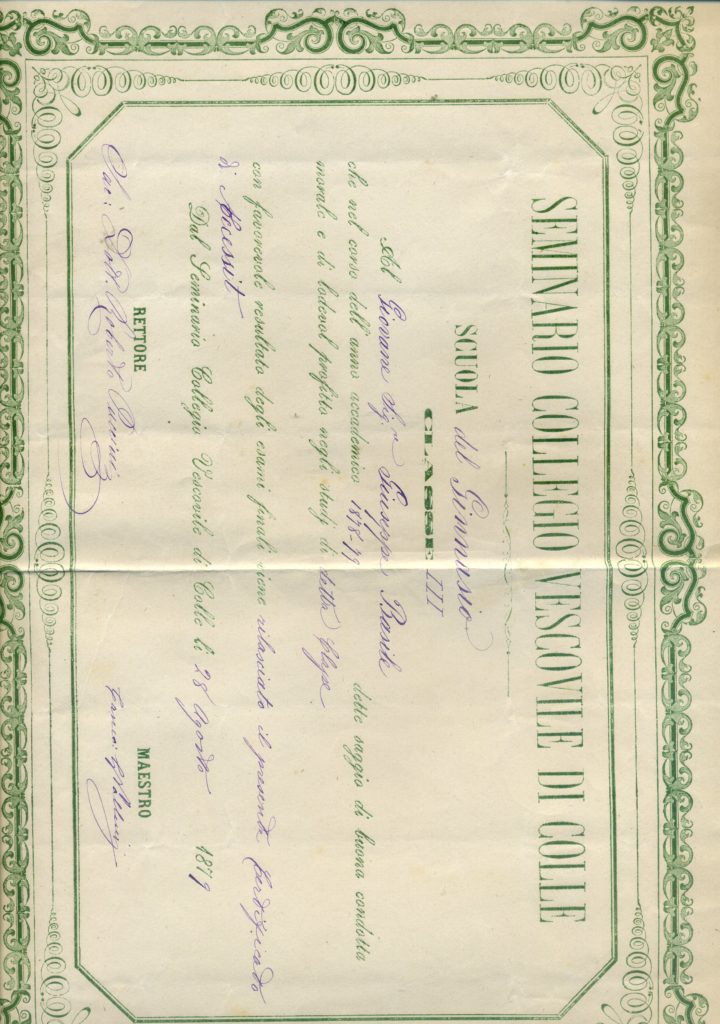 SEMINARIO COLLEGIO VESCOVILE DI COLLE
SCUOLA del Ginnasio
CLASSE III
Al Giovane Sig.r Giuseppe Basile
che nel corso dell'anno accademico 1878-79 dette saggio di buona condotta
morale e di lodevol profitto negli studj di detta Classe
con favorevole resultato degli esami finali viene rilasciato il presente Certificado
di Accessit
Dal Seminario Collegio Vescovile di Colle li 28 Agosto 1879
RETTORE
MAESTRO
Dott. Roberto Puccini